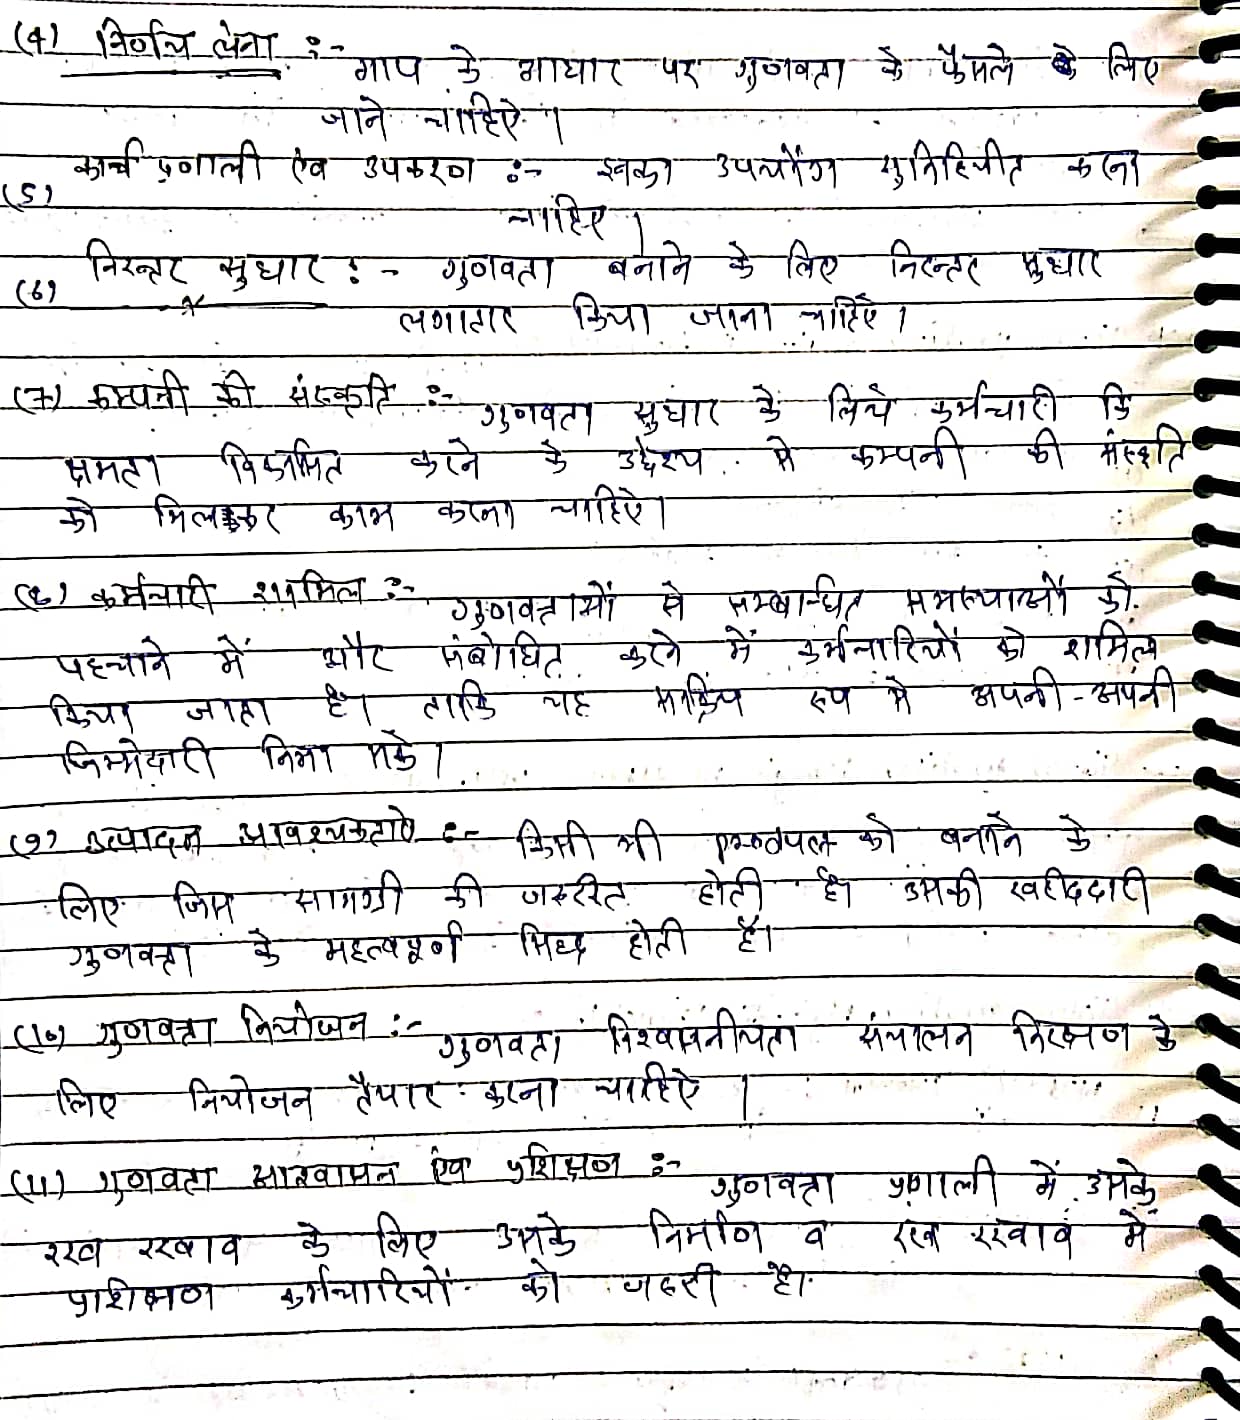 (4) निर्णय लेना :-
माप के आधार पर गुणवता के फैसले के लिए
जाने चाहिऐ ।
कार्य प्रणाली एंव उपकरण :- इनका उपयोग सुनिश्चित करना
(5)
चाहिए ।
निरन्तर सुधार :- गुणवता बनाने के लिए निरन्तर सुधार
(6)
लगातार किया जाना चाहिऐ ।
(7) कम्पनी की संस्कृति :-
गुणवता सुधार के लिये कर्मचारी कि
क्षमता विकसित करने के उद्देश्य से कम्पनी की संस्कृति
को मिलकर काम करना चाहिऐ।
(8) कर्मचारी शामिल :-
गुणवत्ताओं से सम्बान्धित समस्याओं को
पहचाने में और संबोधित करने में कर्मचारियों को शामिल
किया जाता है। ताकि यह सक्रिय रूप से अपनी-अपनी
जिम्मेदारी निभा सके।
(9) उत्पादन आवश्यकताऐ :- किसी भी को बनाने के
लिए जिस सामग्री की जरूरत होती है। उसकी खरीददारी
गुणवत्ता के महत्वपूर्ण सिध्द होती है।
(10) गुणवत्ता नियोजन :-
गुणवता विश्वासनीयता संचालन निरक्षण के
लिए नियोजन तैयार करना चाहिऐ ।
(11) गुणवता आश्वासन एंव प्रशिक्षण :-
गुणवत्ता प्रणाली में उसके
रख रखाव के लिए उसके निर्माण व रख रखाव में
प्रशिक्षण कर्मचारियों को जरूरी है।